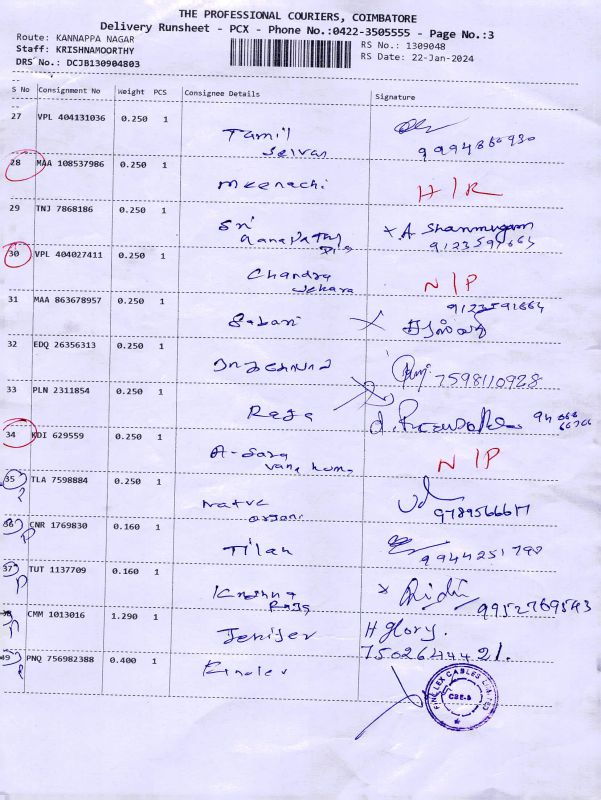 THE PROFESSIONAL COURIERS, COIMBATORE
Delivery Runsheet - PCX - Phone No.:0422-3505555 - Page No.:3
Route: KANNAPPA NAGAR
RS No.: 1309048
Staff: KRISHNAMOORTHY
RS Date: 22-Jan-2024
DRS No.: DCJB130904803
S No Consignment No Weight PCS Consignee Details Signature
27 VPL 404131036 0.250 1
Tamil
Selvan
28 MAA 108537986 0.250 1
Meenachi H/R
29 TNJ 7868186 0.250 1
Sri
Ganapathy
A. Shanmugam
30 VPL 404027411 0.250 1
Chandra
Sekara
N/P
31 MAA 863678957 0.250 1
9123591664
Sabari
32 EDQ 26356313 0.250 1
7598110928
33 PLN 2311854 0.250 1
Raja
34 KDI 629559 0.250 1
A-Sara
vana kumar
N/P
35 TLA 7598884 0.250 1
36 CNR 1769830 0.160 1
Tilak
9944251790
37 TUT 1137709 0.160 1
Krishna
Raja
9952769543
38 CMM 1013016 1.290 1
Jenifer
H glory.
7502644421.
PNQ 756982388 0.400 1
FINOLEX CABLES LIMITED
CBE-5